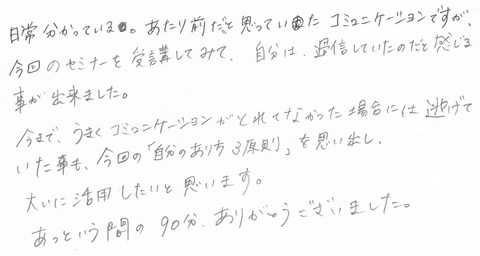 日常分かっている。あたり前だと思っていた コミュニケーションですが、
今回のセミナーを受講してみて、自分は、過信していたのだと感じる
事が出来ました。
今まで、うまくコミュニケーションがとれてなかった場合には逃げて
いた事も、今回の「自分のあり方3原則」を思い出し、
大いに活用したいと思います。
あっという間の90分、ありがとうございました。